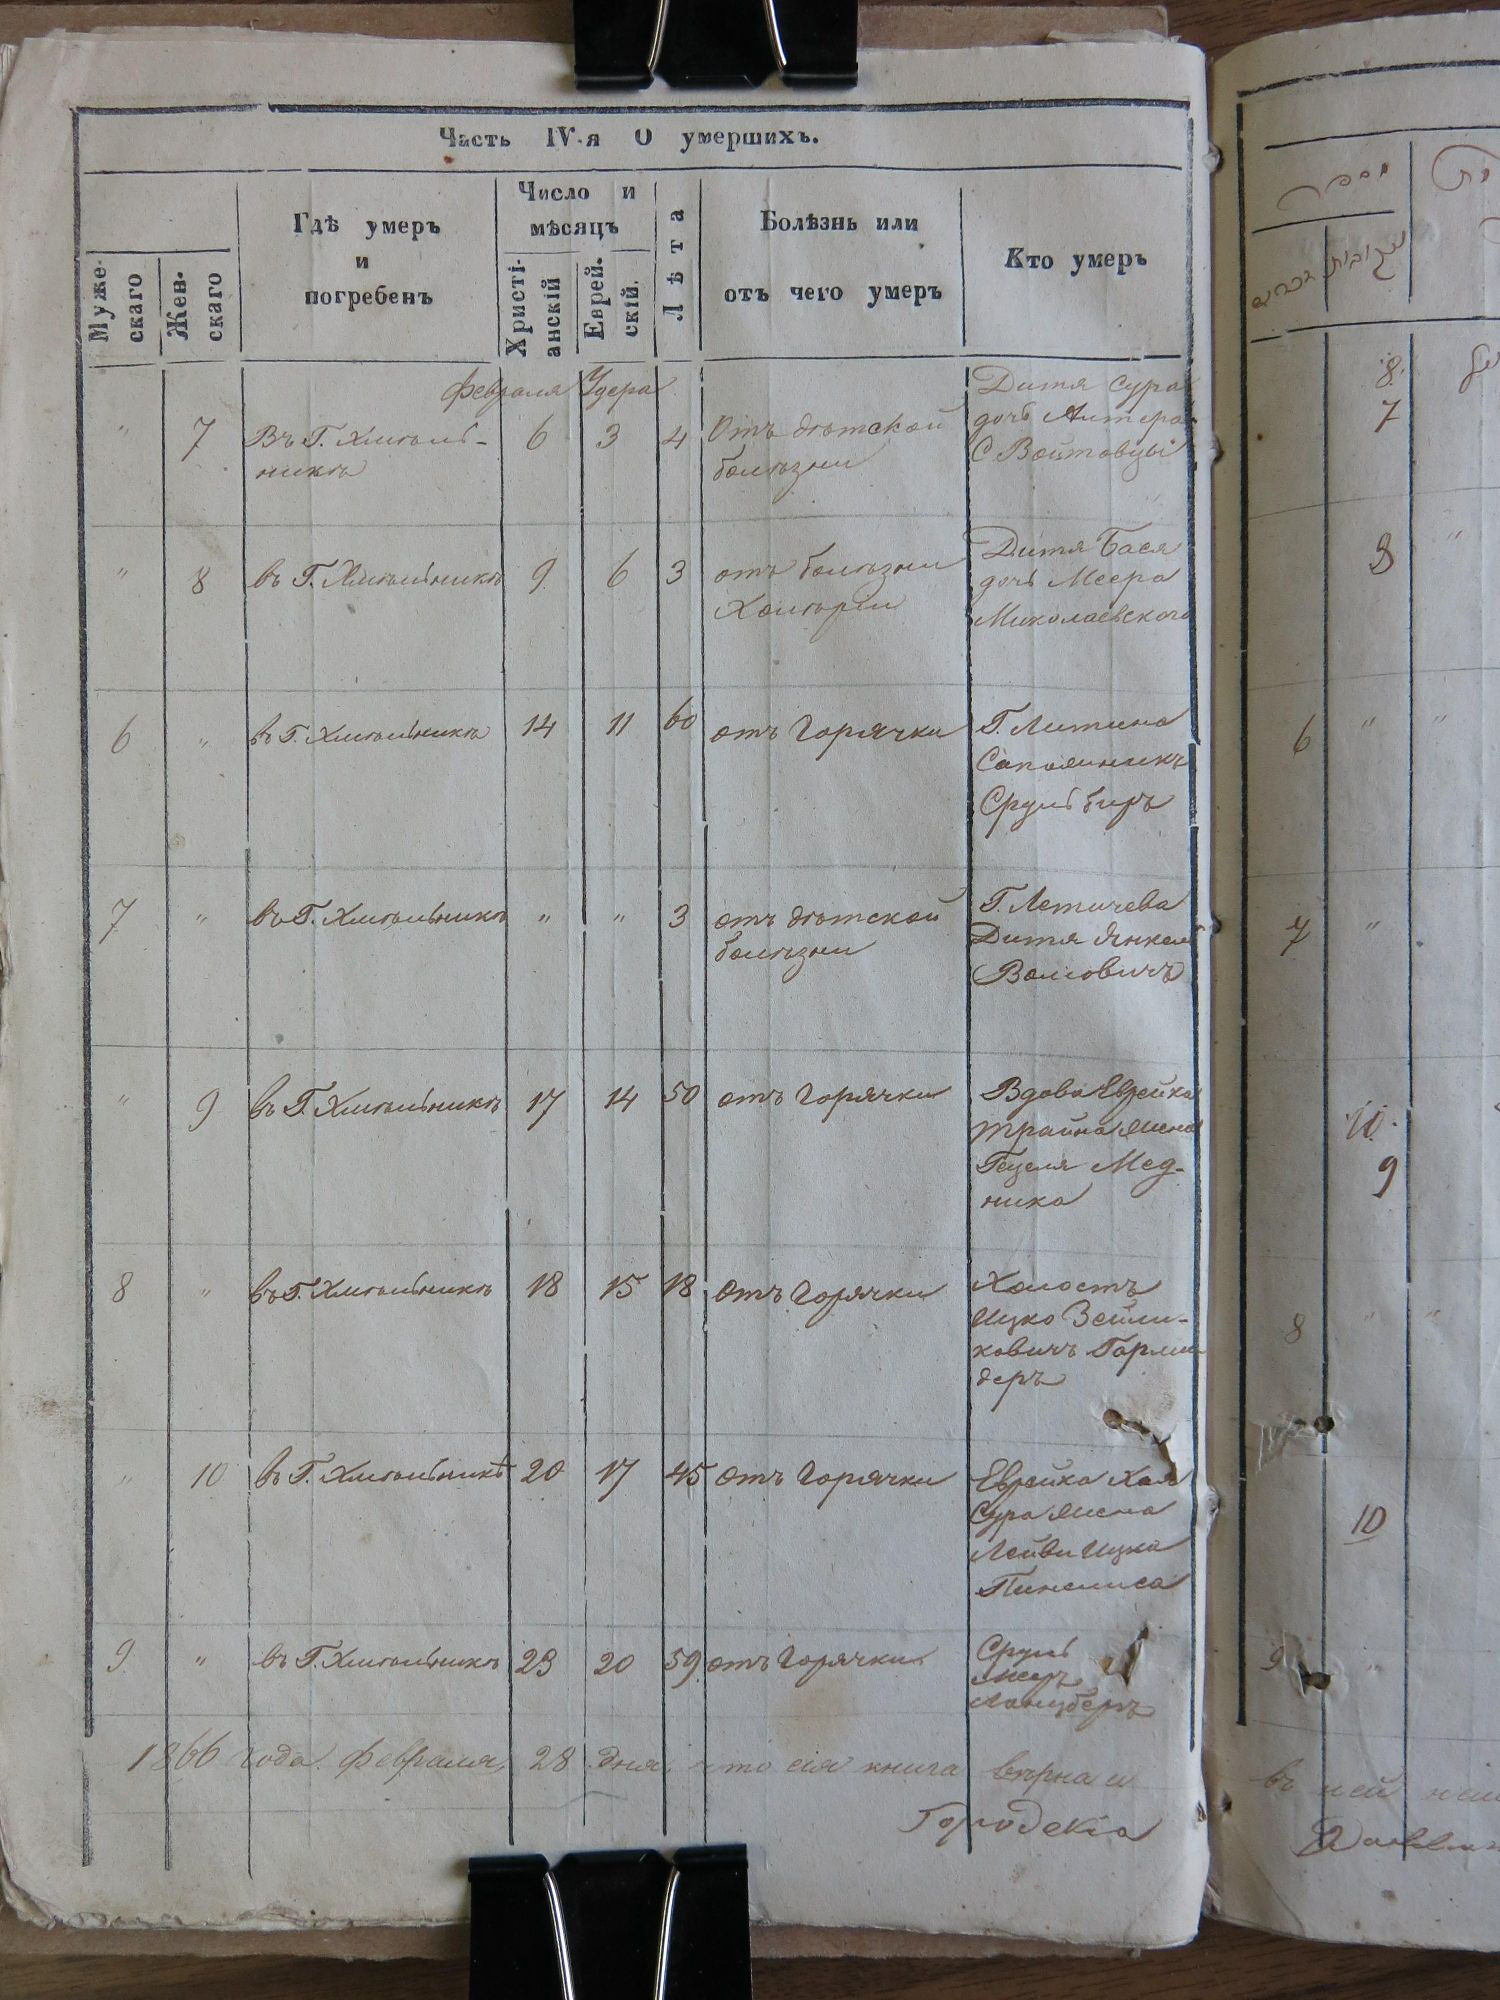 Часть IV-я О умершихъ.
Муже-
скаго
Жен-
скаго
Гдѣ умеръ
и
погребенъ
Число и
мѣсяцъ
Христі-
анскій
Еврей-
скій.
Лѣта
Болѣзнь или
отъ чего умеръ
Кто умеръ
Февраля Удера
" 7 Въ Г. Хмѣль-
никѣ
6 3 4 Отъ дѣтской
болѣзни
Дитя Сура
дочь Алтера
С Войтовцы
" 8 въ Г. Хмѣльникѣ 9 6 3 отъ болѣзни
Холѣры
Дитя Бася
дочь Меера
Миколаевского
6 " въ Г. Хмѣльникѣ 14 11 60 отъ Горячки
Г. Литина
Сапожникъ
Сруль
7 " въ Г. Хмѣльникѣ " " 3 отъ дѣтской
болѣзни
Г. Летичева
Дитя Янкель
Волковичъ
" 9 въ Г. Хмѣльникѣ 17 14 50 отъ горячки
Вдова Еврейка
Трайна жена
Гецеля Мед-
ника
8 " въ Г. Хмѣльникѣ 18 15 18 Отъ Горячки
Холостъ
Ицко Зейли-
ковичъ
деръ
" 10 въ Г. Хмѣльникѣ 20 17 45 Отъ Горячки
Еврейка Хая
Сура жена
Лейви Ицка
9 " въ Г. Хмѣльникѣ 23 20 59 отъ Горячки
Сруль
Мееръ
1866 года Февраля 28 дня, что сія книга вѣрна и
מספר
נקבות
זכרים
8.
7
8
6 " "
7 "
10.
9
8 " "
10
9 "
въ ней